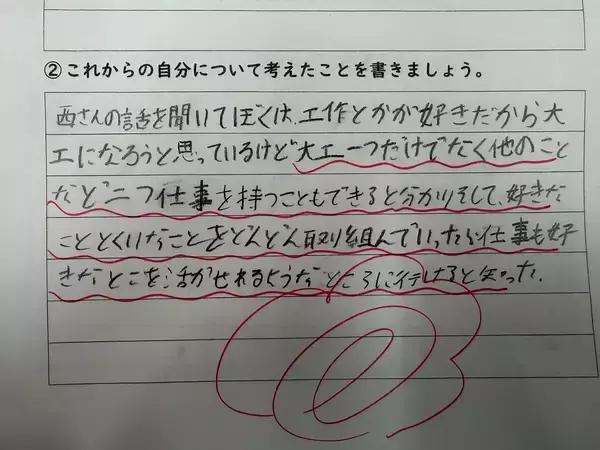 ②これからの自分について考えたことを書きましょう。
西さんの話を聞いてぼくは、工作とかが好きだから大
工になろうと思っているけど大工一つだけでなく他のこと
など二つ仕事を持つこともできると分かりそして、好きな
こととくいなことをどんどん取り組んでいったら仕事も好
きなとこを活かせれるようなところに行けると知った。